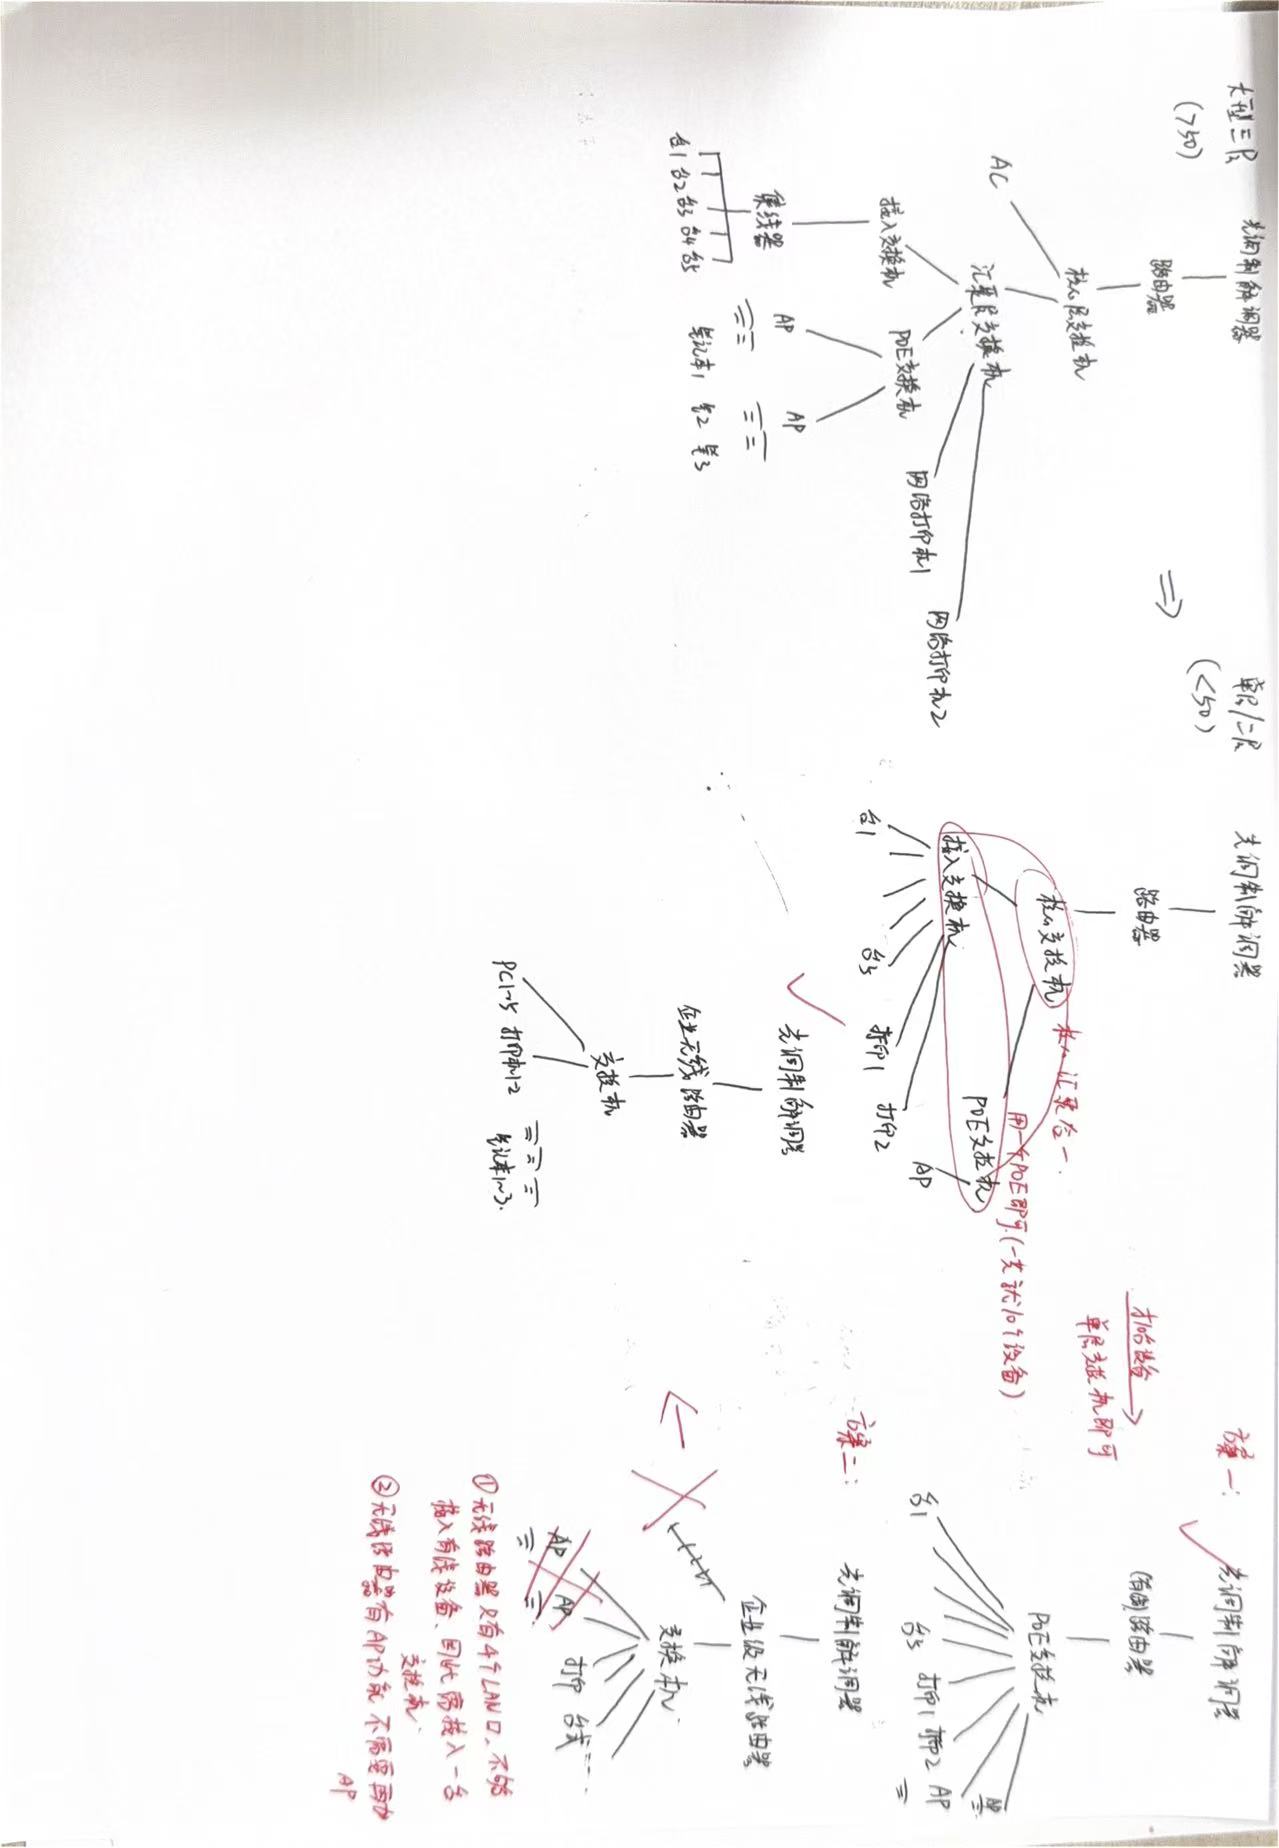 大型三层
(>50)
光调制解调器
路由器
核心层交换机
AC
汇聚层交换机
接入交换机
POE交换机
网络打印机1
网络打印机2
集线器
台1 台2 台3 台4 台5
AP
AP
笔记本1 笔2 笔3
⇒
单层/二层
(<50)
光调制解调器
路由器
核心交换机
核心汇聚合一.
接入交换机
POE交换机
用一个POE即可.(一共就10个设备)
台1
台5
打印1
打印2
AP
✓
光调制解调器
企业无线路由器
交换机
PC1~5 打印机1-2
笔记本1~3.
才10台设备
单层交换机即可
方案一:
✓
光调制解调器
(有线)路由器
POE交换机
台1
台5
打印1
打印2
AP
AP
方案二:
光调制解调器
企业级无线路由器
交换机.
AP
AP
打印
台式
①无线路由器只有4个LAN口、不够
接入有线设备、因此需接入一台
交换机.
②无线路由器有AP功能、不需要再加
AP